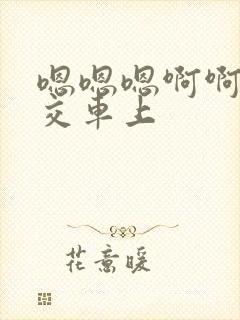 嗯嗯嗯啊啊
交车上
花意暖